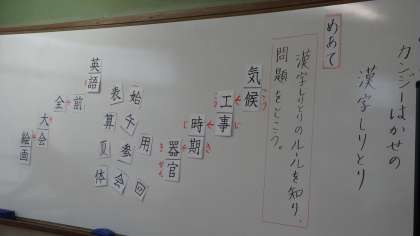 カンジーはかせの
漢字しりとり
めあて
漢字しりとりのルールを知り、
問題をとこう。
気候
こう
工事
じ
時期
き
器官
かん
始
表
午
算
用
参
夏
回
会
体
英語
前
全
大会
絵画